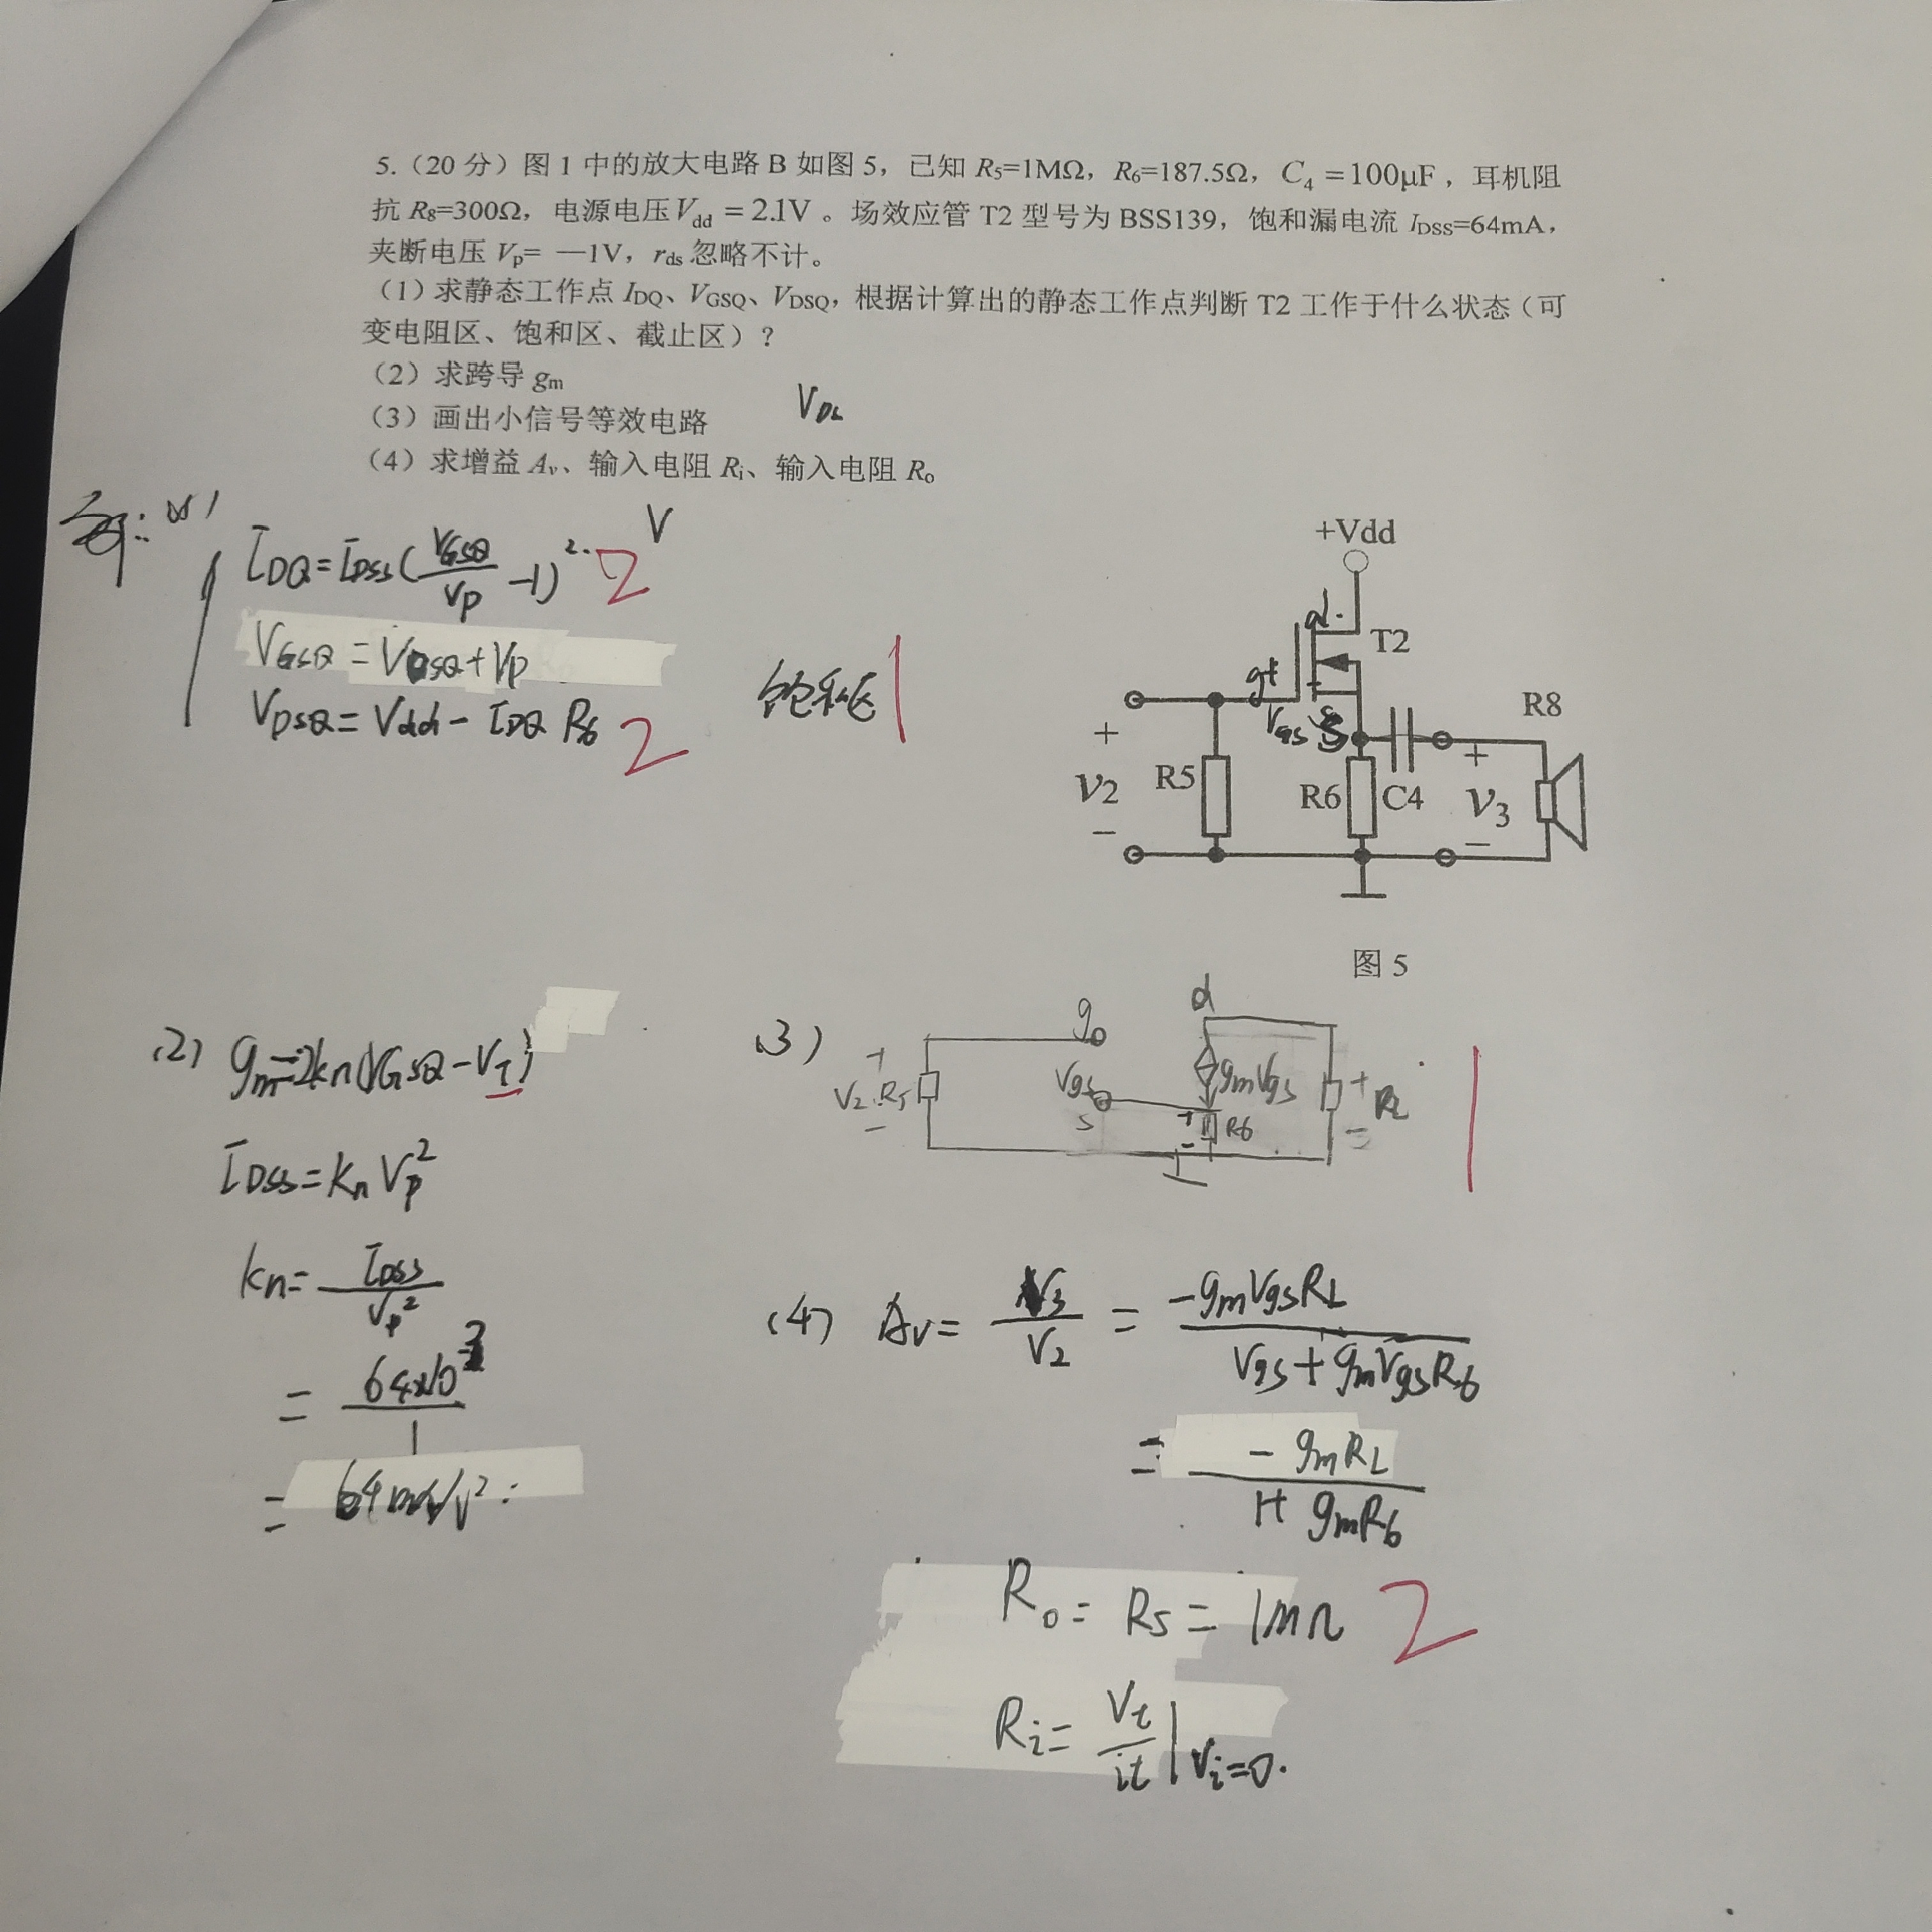 5.（20 分）图 1 中的放大电路 B 如图 5，已知 R5=1MΩ，R6=187.5Ω，C4 =100μF，耳机阻
抗 R8=300Ω，电源电压 Vdd = 2.1V 。场效应管 T2 型号为 BSS139，饱和漏电流 IDSS=64mA，
夹断电压 Vp= —1V，rds 忽略不计。
（1）求静态工作点 IDQ、VGSQ、VDSQ，根据计算出的静态工作点判断 T2 工作于什么状态（可
变电阻区、饱和区、截止区）？
（2）求跨导 gm
（3）画出小信号等效电路
（4）求增益 Av、输入电阻 Ri、输入电阻 Ro
IDQ=IDSS(VGSQ/Vp -1)² 2
V
VGSQ = VDSQ+Vp
VDSQ = Vdd - IDQ R6 2
饱和区 1
+Vdd
d
T2
g
Vgs
s
R8
+
V2
−
R5
R6
C4
+
V3
−
图 5
(2) gm=2kn(VGSQ-VT)
IDSS=kn Vp²
kn= IDSS/Vp²
= 64x10⁻³/1
= 64mA/V²
(3)
g
d
+
V2
−
R5
Vgs
s
gmVgs
+
−
R6
+
RL
−
1
(4) Av= V3/V2 = -gmVgsRL/Vgs+gmVgsR6
= -gmRL/1+gmR6
Ro= R5= 1MΩ 2
Ri= Vt/it | Vi=0.